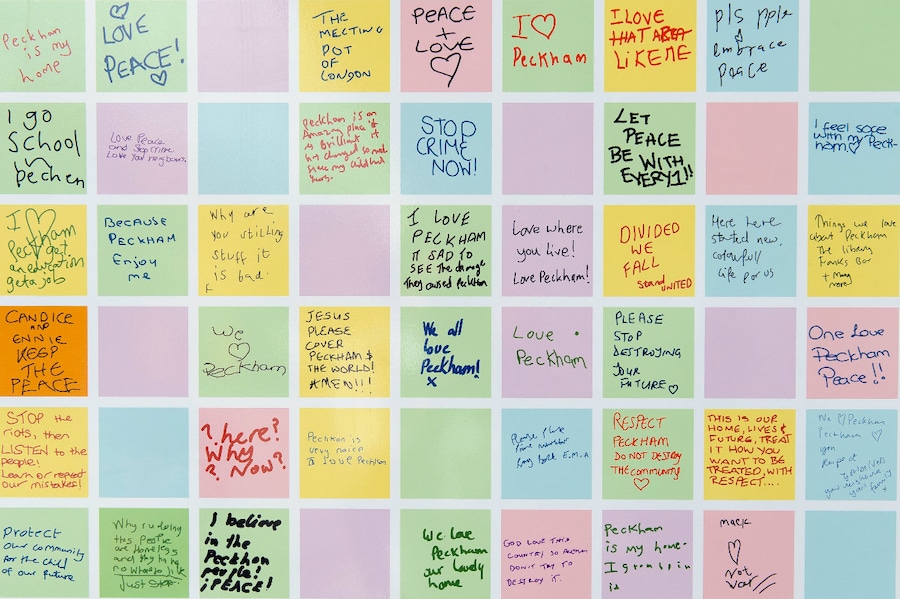 Peckham
is my
home
LOVE
PEACE!
THE
MELTING
POT
OF
LONDON
PEACE
+
LOVE
I ♡
Peckham
I LOVE
THAT AREA
LiKE ME
pls pple
&
embrace
peace
I go
School
in
peckhen
Love Peace
and Stop Crime
Love your neighbours.
Peckham is an
Amazing place it
is Brilliant it
has changed so much
since my childhood
years.
STOP
CRIME
NOW!
LET
PEACE
BE WITH
EVERY1!!
I feel safe
with my Peck-
ham♡
I ♡
Peckham
get
an education
get a job
BECAUSE
PECKHAM
Enjoy
me
Why are
you stilling
stuff it
is bad.
I LOVE
PECKHAM
IT SAD TO
SEE the damage
they caused peckham
Love where
you Live!
Love Peckham!
DIVIDED
WE
FALL
Stand UNITED
Here here
started new,
colourfull
life for us
Things we love
about Peckham
The library
Franks Bar
+ many
more)
CANDICE
AND
ENNIE
KEEP
THE
PEACE
We
♡
Peckham
JESUS
PLEASE
COVER
PECKHAM &
THE WORLD!
AMEN!!!
We all
love
Peckham!
x
Love
Peckham
PLEASE
STOP
DESTROYING
YOUR
FUTURE ♡
One Love
Peckham
Peace!!
STOP the
riots, then
LISTEN to the
people!
Learn or repeat
our mistakes!
? here?
Why
? Now?
Peckham is
very noice
I love Peckham
Please
E.M.A
RESPECT
PECKHAM
DO NOT DESTROY
THE COMMUNITY
♡
THIS IS OUR
HOME, LIVES &
FUTURE, TREAT
IT HOW YOU
WANT TO BE
TREATED, WITH
RESPECT....
♡ Peckham
Peckham ♡
you
Respect
your neighbours
your family
Protect
our community
for the child
of our future
Why r u doing
this people
are Homeless
and they having
no where to live
Just Stop.
I believe
in the
Peckham
people!
¡PEACE!
We love
Peckham
our lovely
home
GOD LOVE THIS
COUNTRY SO
DON'T TRY TO
DESTROY IT.
Peckham
is my home.
I grew up in
it
mack
♡
Not
Var